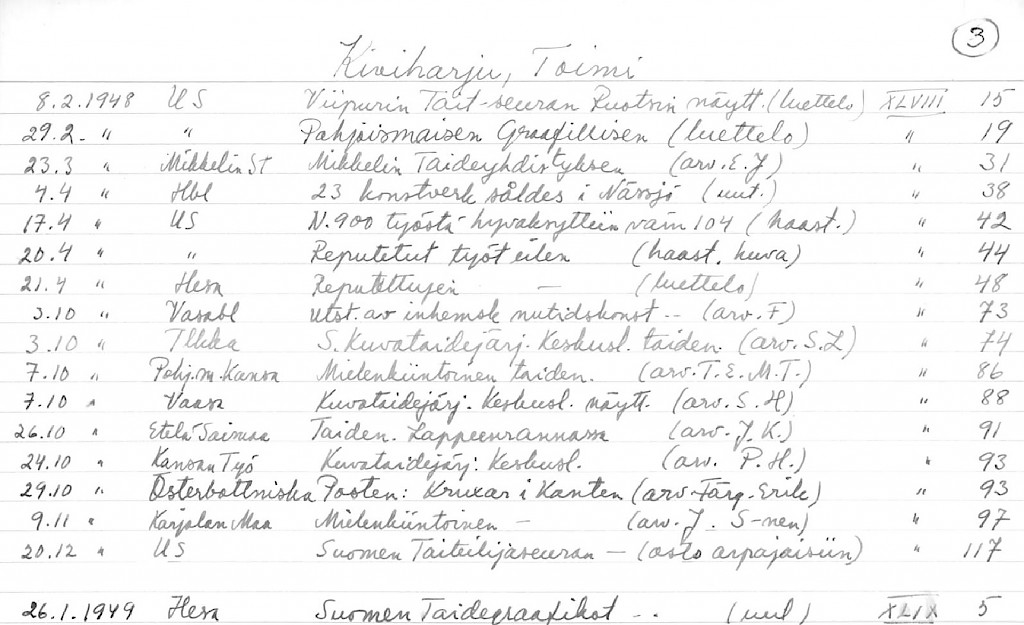 3
Kiviharju, Toimi
8.2.1948 US Viipurin Tait-seuran Ruotsin näytt. (luettelo) XLVIII 15
29.2. " " Pohjoismaisen Graafillisen (luettelo) " 19
23.3 " Mikkelin St Mikkelin Taideyhdistyksen (arv. E.J) " 31
4.4 " Hbl 23 konstverk såldes i Nässjö (uut.) " 38
17.4 " US N. 900 työstä hyväksyttiin vain 104 (haast.) " 42
20.4 " " Reputetut työt eilen (haast, kuva) " 44
21.4 " Hesa Reputettujen — (luettelo) " 48
3.10 " Vasabl Utst. av inhemsk nutidskonst -- (arv. F) " 73
3.10 " Ilkka S. Kuvataidejärj. Keskusl. taiden. (arv. S.L) " 74
7.10 " Pohj.m. Kansa Mielenkiintoinen taiden. (arv. T.E.M.T.) " 86
7.10 " Vaasa Kuvataidejärj. Keskusl. näytt. (arv. S.H) " 88
26.10 " Etelä-Saimaa Taiden. Lappeenrannassa (arv. J.K.) " 91
24.10 " Kansan Työ Kuvataidejärj. Keskusl. (arv. P.H.) " 93
29.10 " Österbottniska Posten: Kruxar i Kanten (arv. Färg-Erik) " 93
9.11 " Karjalan Maa Mielenkiintoinen — (arv. J. S-nen) " 97
20.12 " US Suomen Taiteilijaseuran — (osto arpajaisiin) " 117
26.1.1949 Hesa Suomen Taidegraafikot -- (uut) XLIX 5